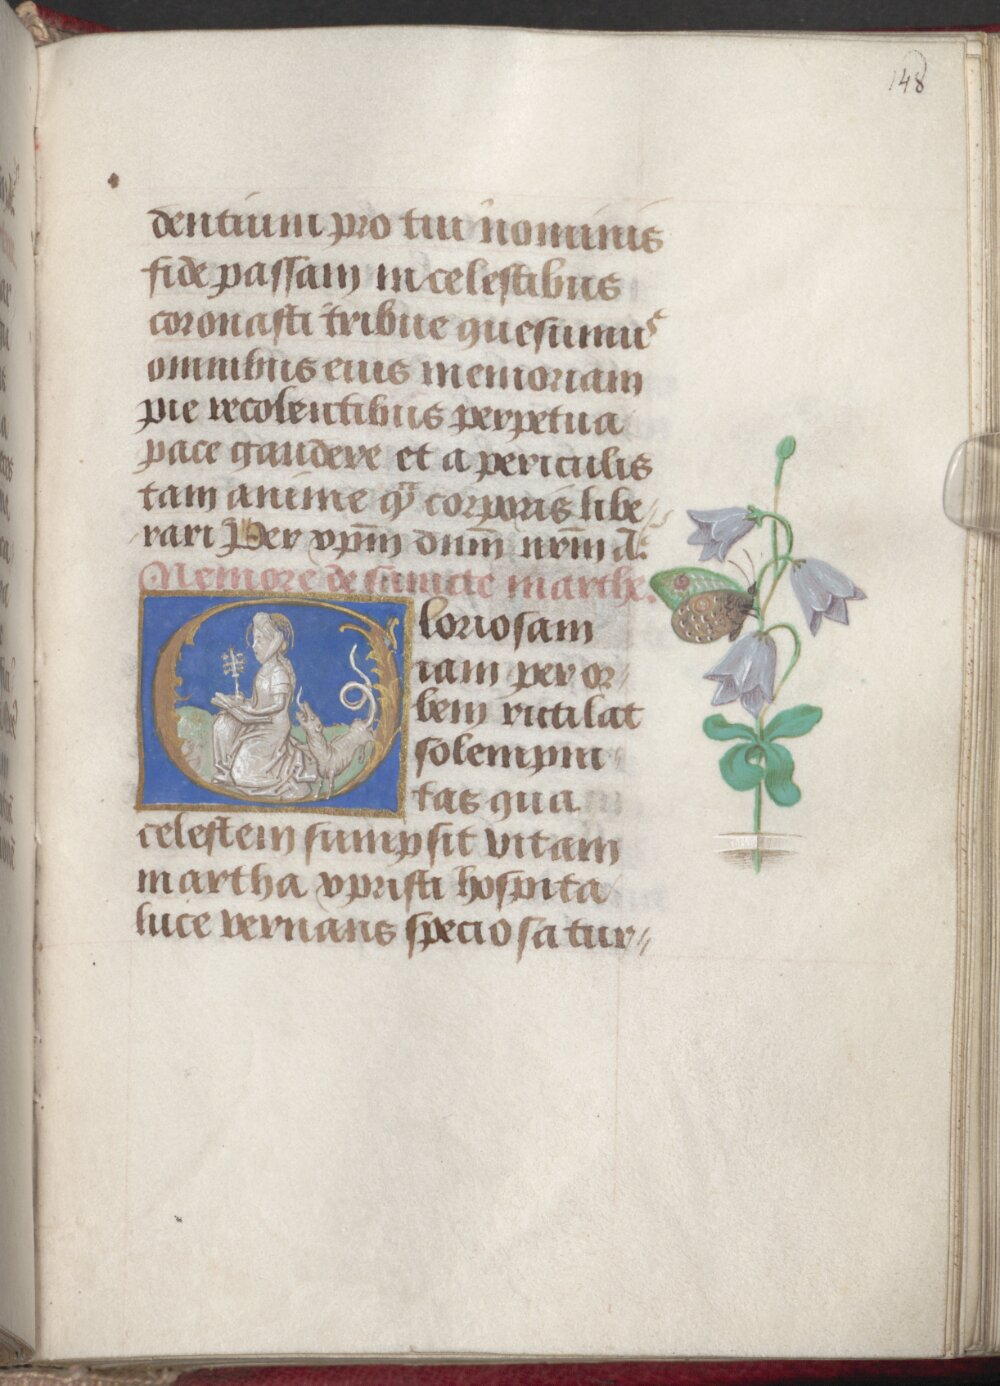 148
dentium pro tui nominis
fide passam in celestibus
coronasti tribue quesumus
omnibus eius memoriam
pie recolentibus perpetua
pace gaudere et a periculis
tam anime qͣ corporis libe//
rari Per xp̄m dn̄m nr̄m A:
Memore de sancte marthe.
Gloriosam
iam per or/
bem rutilat
solempni//
tas qua
celestem sumpsit vitam
martha xpristi hospita
luce vernans speciosa tur//